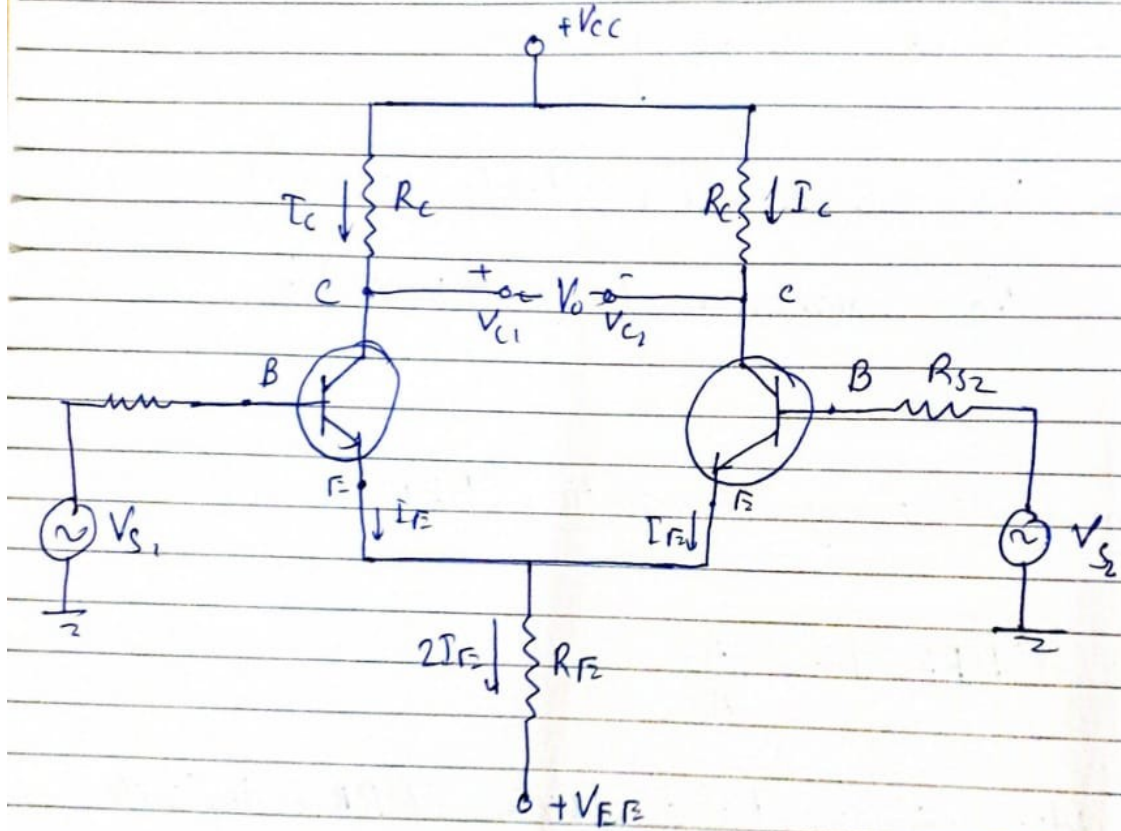 +VCC
IC RC RC IC
C + V0 - C
VC1 VC2
B B RS2
E E
IE IE
VS1 VS2
2IE RE
+VEE